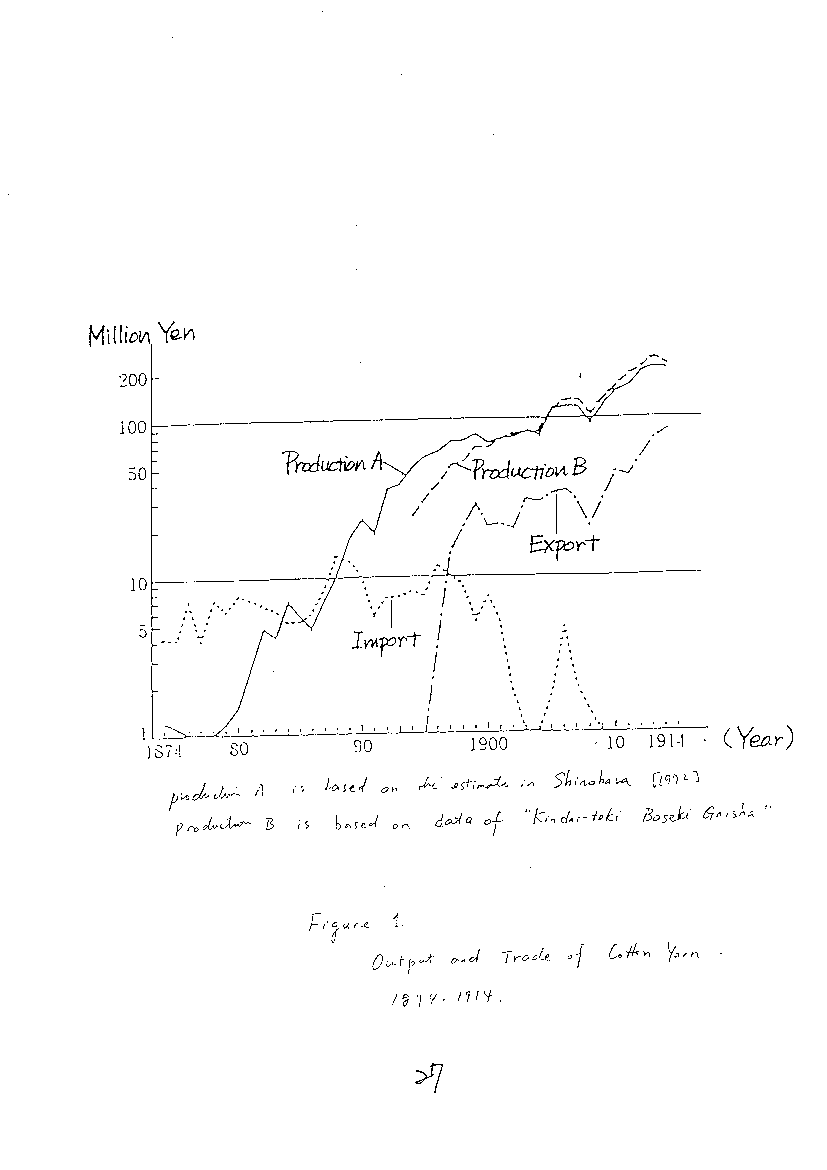 Million Yen
200
100
50
10
5
1
Production A
Production B
Export
Import
1874 80 90 1900 10 1914 (Year)
production A is based on the estimate in Shinohara [1972]
Production B is based on data of "Kindai-teki Boseki Gaisha"
Figure 1.
Output and Trade of Cotton Yarn.
1874-1914.
27